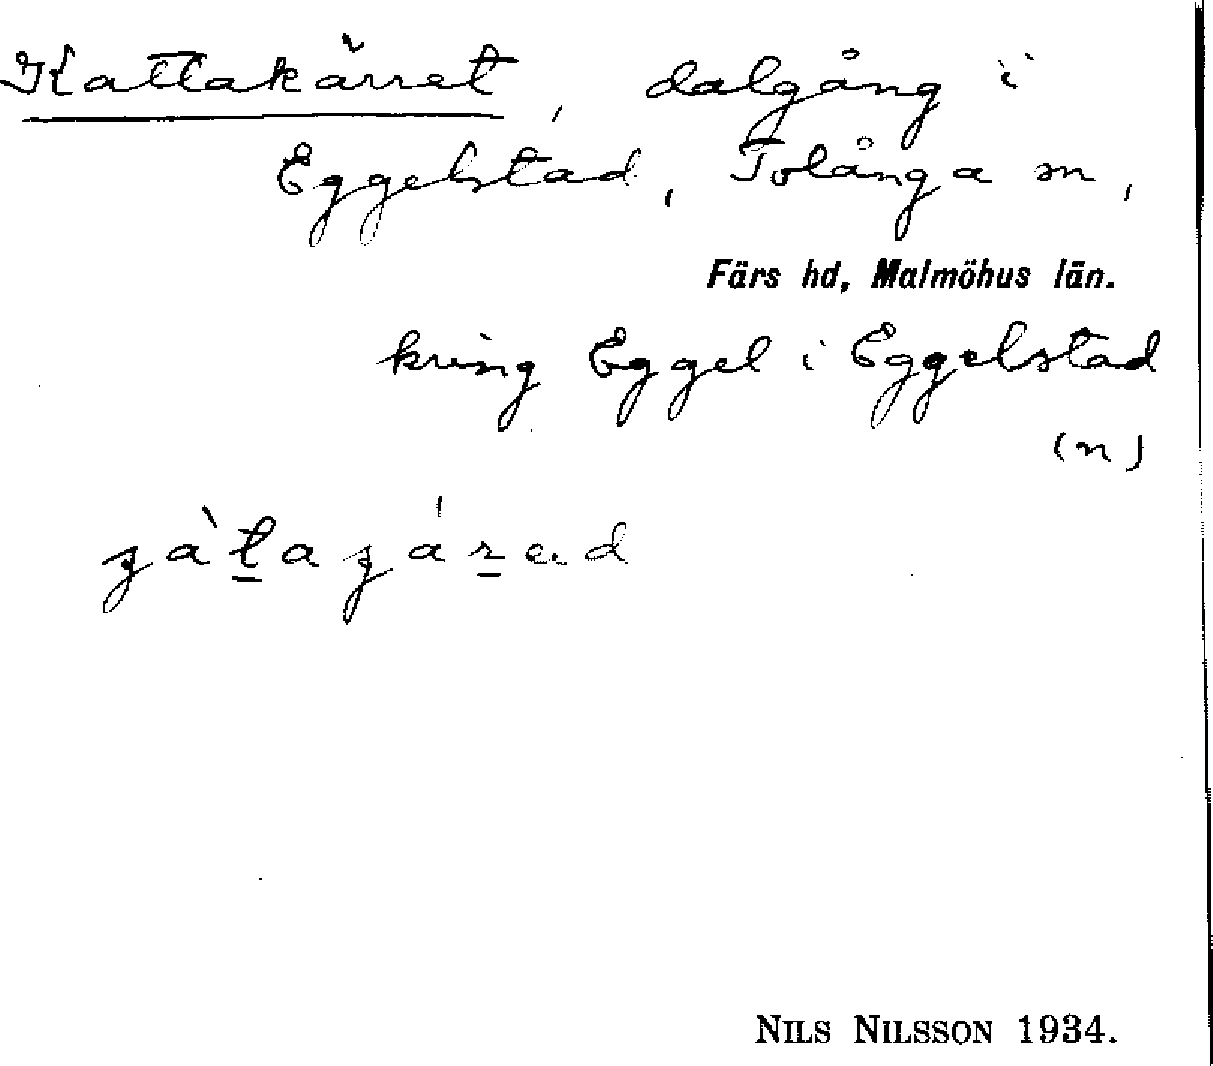 Kattakärret, dalgång i
Eggelstad, Tolånga sn,
Färs hd, Malmöhus län.
kring Eggel i Eggelstad
(n)
NILS NILSSON 1934.